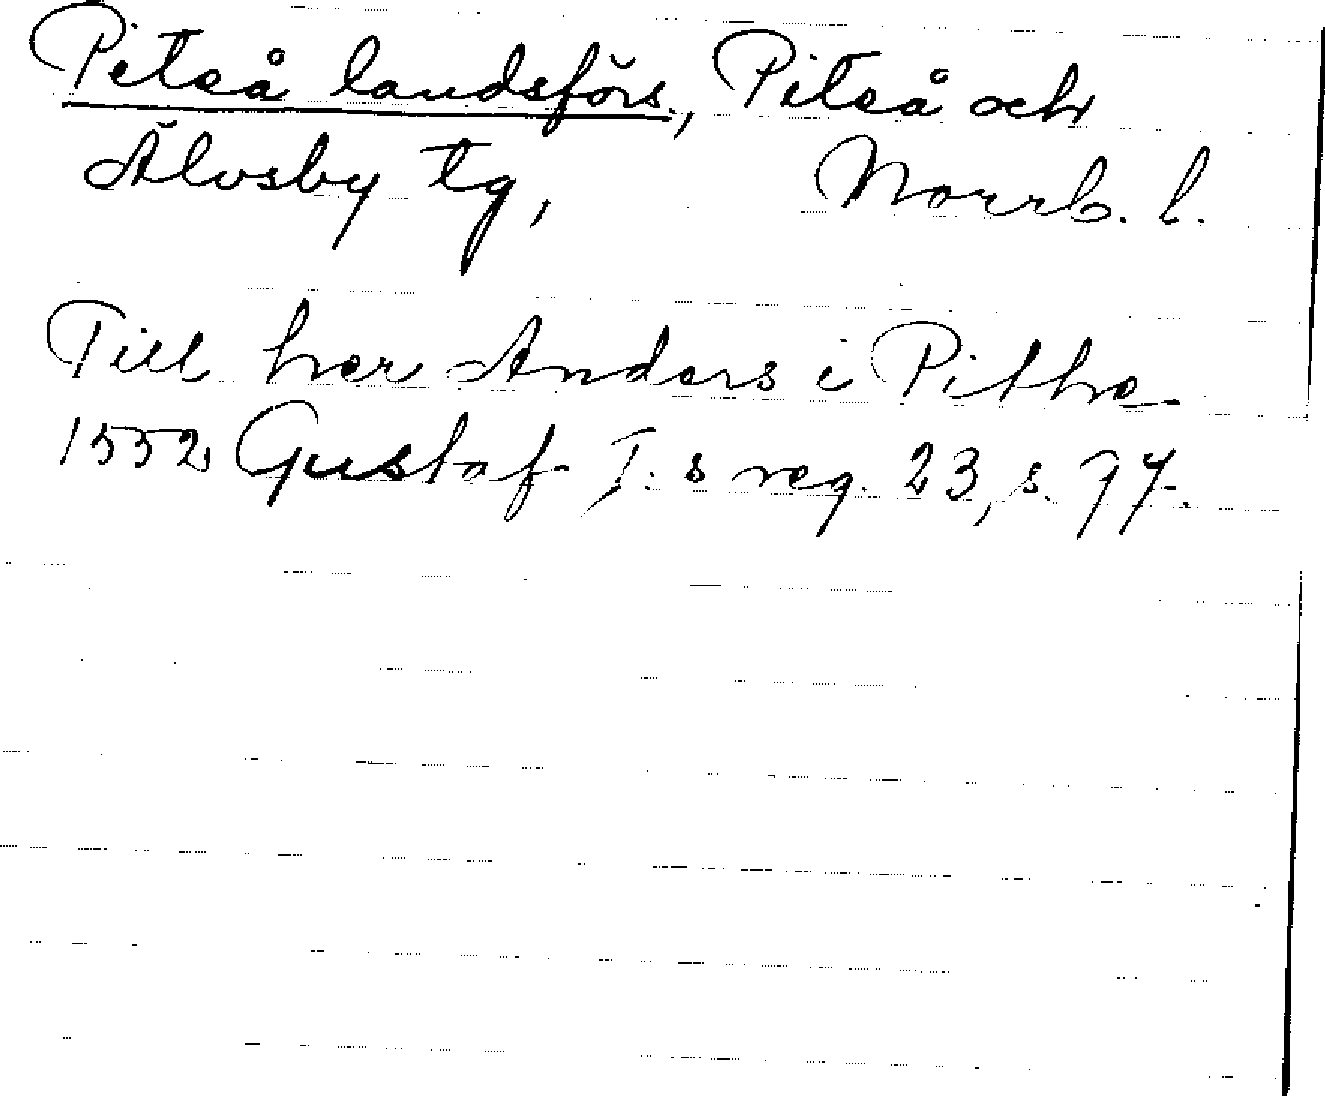 Piteå landsförs., Piteå och
Älvsby tg, Norrb. l.
Till her Anders i Pithe
1552 Gustaf I:s reg. 23, s. 97.